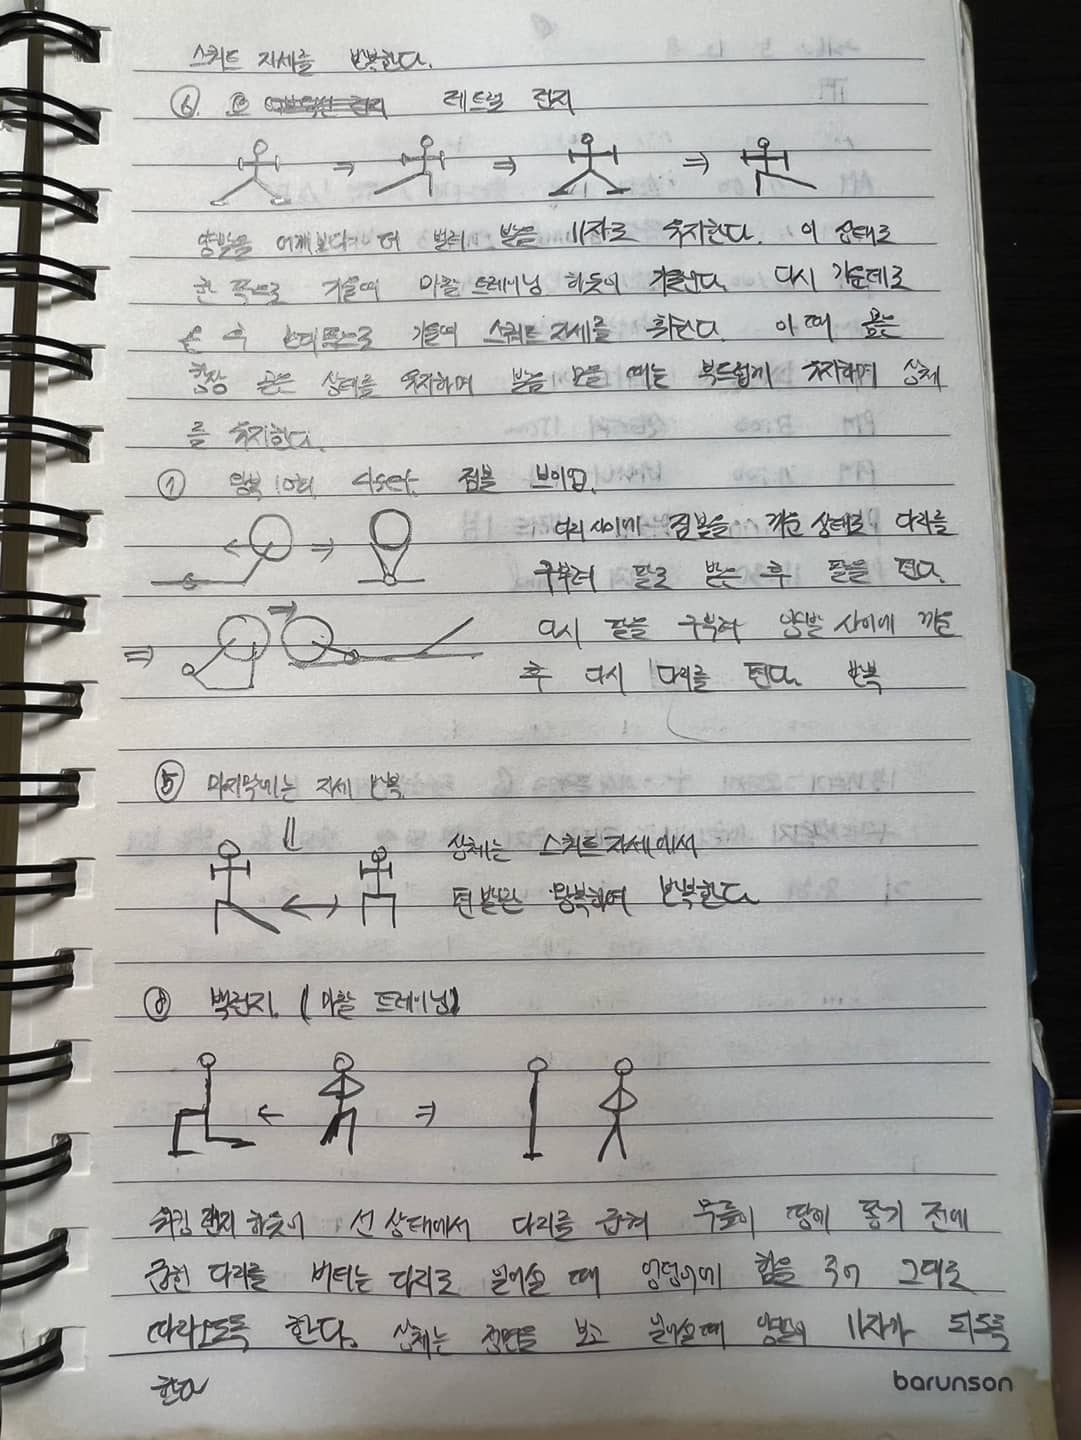 스쿼트 자세를 반복한다.
⑥ 레드럴 런지
양발을 어깨보다 더 벌려 발을 11자로 유지한다. 이 상태로
한 쪽으로 기울여 마찰 트레이닝 하듯이 기울인다. 다시 가운데로
온 후 반대쪽으로 기울여 스쿼트 자세를 취한다. 이 때 몸은
항상 곧은 상태를 유지하며 발을 모을 때는 부드럽게 유지하며 상체
를 유지한다.
⑦ 왕복 10회 4set. 짐볼 브이업.
다리 사이에 짐볼을 끼운 상태로 다리를
구부려 팔로 받은 후 팔을 편다.
다시 팔을 구부려 양발 사이에 끼운
후 다시 다리를 편다. 반복
⑤ 마지막에는 자세 반복.
상체는 스쿼트 자세에서
편 발만 왕복하여 반복한다.
⑧ 백런지. (마찰 트레이닝)
워킹 런지 하듯이 선 상태에서 다리를 굽혀 무릎이 땅에 닿기 전에
굽힌 다리를 버티는 다리로 일어설 때 엉덩이에 힘을 주어 그대로
따라오도록 한다. 상체는 정면을 보고 일어설 때 양발이 11자가 되도록
한다
barunson